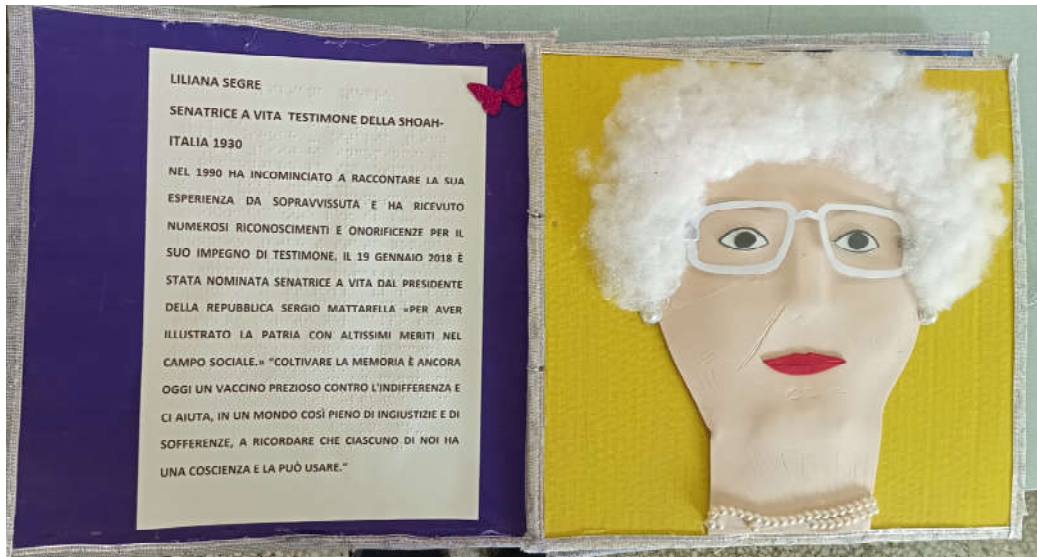 LILIANA SEGRE
SENATRICE A VITA TESTIMONE DELLA SHOAH-
ITALIA 1930
NEL 1990 HA INCOMINCIATO A RACCONTARE LA SUA
ESPERIENZA DA SOPRAVVISSUTA E HA RICEVUTO
NUMEROSI RICONOSCIMENTI E ONORIFICENZE PER IL
SUO IMPEGNO DI TESTIMONE. IL 19 GENNAIO 2018 È
STATA NOMINATA SENATRICE A VITA DAL PRESIDENTE
DELLA REPUBBLICA SERGIO MATTARELLA «PER AVER
ILLUSTRATO LA PATRIA CON ALTISSIMI MERITI NEL
CAMPO SOCIALE.» "COLTIVARE LA MEMORIA È ANCORA
OGGI UN VACCINO PREZIOSO CONTRO L'INDIFFERENZA E
CI AIUTA, IN UN MONDO COSÌ PIENO DI INGIUSTIZIE E DI
SOFFERENZE, A RICORDARE CHE CIASCUNO DI NOI HA
UNA COSCIENZA E LA PUÒ USARE."